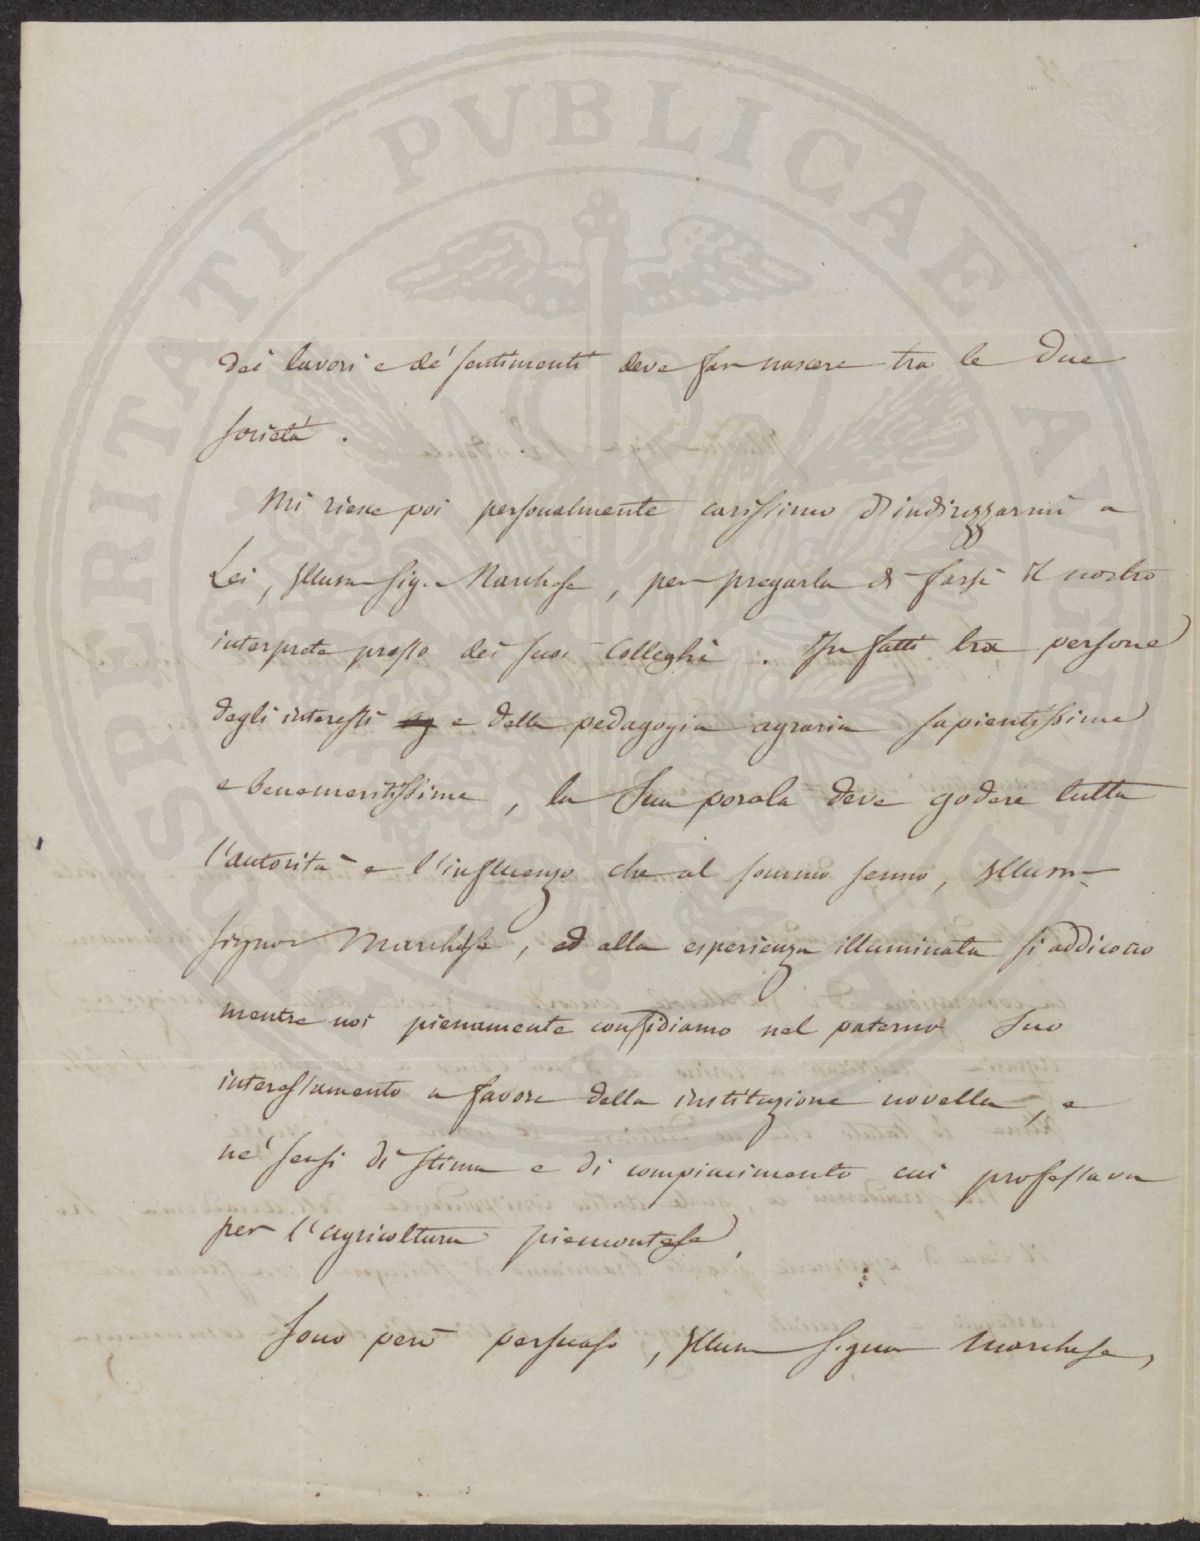 dei lavori e de' sentimenti deve far nascere tra le due
società.
Mi riesce poi personalmente carissimo d'indirizzarmi a
Lei, Illum Sig. Marchese, per pregarla di farsi il nostro
interprete presso dei suoi Colleghi. In fatti tra persone
degli interessi e della pedagogia agraria sapientissime
e benemeritissime, la Sua parola deve godere tutta
l'autorità e l'influenza che al sommo senno, Illum
Signor Marchese, ed alla esperienza illuminata si addicono
mentre noi pienamente confidiamo nel paterno Suo
interessamento a favore della instituzione novella, e
ne' sensi di stima e di compiacimento cui professava
per l'agricoltura piemontese.
Sono però persuaso, Illum Signor Marchese,
PROSPERITATI PVBLICAE AVGENDAE